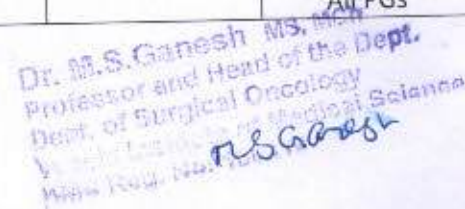 All PGs
Dr. M.S.Ganesh MS, MCh
Professor and Head of the Dept.
Dept. of Surgical Oncology
Institute of Medical Science
Reg. No.
M S Ganesh